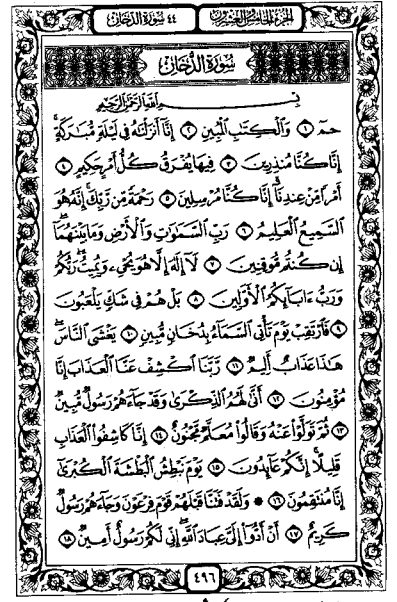 الجزء الخامس والعشرون
٤٤ سورة الدخان
سُورَةُ الدُّخَانِ
بِسْمِ اللَّهِ الرَّحْمَٰنِ الرَّحِيمِ
حمٓ ١ وَٱلْكِتَٰبِ ٱلْمُبِينِ ٢ إِنَّآ أَنزَلْنَٰهُ فِى لَيْلَةٍ مُّبَٰرَكَةٍ
إِنَّا كُنَّا مُنذِرِينَ ٣ فِيهَا يُفْرَقُ كُلُّ أَمْرٍ حَكِيمٍ ٤
أَمْرًا مِّنْ عِندِنَآ إِنَّا كُنَّا مُرْسِلِينَ ٥ رَحْمَةً مِّن رَّبِّكَ إِنَّهُۥ هُوَ
ٱلسَّمِيعُ ٱلْعَلِيمُ ٦ رَبِّ ٱلسَّمَٰوَٰتِ وَٱلْأَرْضِ وَمَا بَيْنَهُمَآ
إِن كُنتُم مُّوقِنِينَ ٧ لَآ إِلَٰهَ إِلَّا هُوَ يُحْىِۦ وَيُمِيتُ رَبُّكُمْ
وَرَبُّ ءَابَآئِكُمُ ٱلْأَوَّلِينَ ٨ بَلْ هُمْ فِى شَكٍّ يَلْعَبُونَ
٩ فَٱرْتَقِبْ يَوْمَ تَأْتِى ٱلسَّمَآءُ بِدُخَانٍ مُّبِينٍ ١٠ يَغْشَى ٱلنَّاسَ
هَٰذَا عَذَابٌ أَلِيمٌ ١١ رَّبَّنَا ٱكْشِفْ عَنَّا ٱلْعَذَابَ إِنَّا
مُؤْمِنُونَ ١٢ أَنَّىٰ لَهُمُ ٱلذِّكْرَىٰ وَقَدْ جَآءَهُمْ رَسُولٌ مُّبِينٌ
١٣ ثُمَّ تَوَلَّوْا۟ عَنْهُ وَقَالُوا۟ مُعَلَّمٌ مَّجْنُونٌ ١٤ إِنَّا كَاشِفُوا۟ ٱلْعَذَابِ
قَلِيلًا إِنَّكُمْ عَآئِدُونَ ١٥ يَوْمَ نَبْطِشُ ٱلْبَطْشَةَ ٱلْكُبْرَىٰٓ
إِنَّا مُنتَقِمُونَ ١٦ ۞ وَلَقَدْ فَتَنَّا قَبْلَهُمْ قَوْمَ فِرْعَوْنَ وَجَآءَهُمْ رَسُولٌ
كَرِيمٌ ١٧ أَنْ أَدُّوٓا۟ إِلَىَّ عِبَادَ ٱللَّهِ إِنِّى لَكُمْ رَسُولٌ أَمِينٌ ١٨
٤٩٦